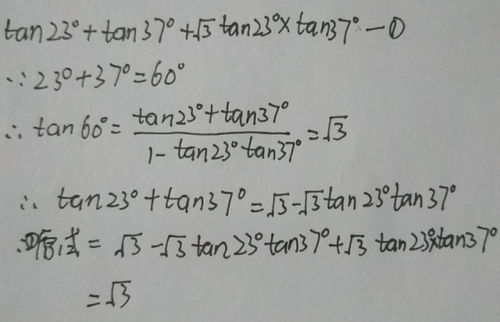 tan23°+tan37°+√3 tan23°×tan37° —①
∵23°+37°=60°
∴ tan60°= (tan23°+tan37°)/(1-tan23°tan37°) =√3
∴ tan23°+tan37°=√3-√3tan23°tan37°
∴原式= √3-√3tan23°tan37°+√3 tan23°×tan37°
=√3